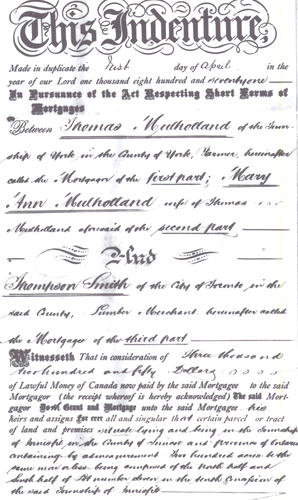 This Indenture,
Made in duplicate the first day of April in the
year of our Lord one thousand eight hundred and seventy one
In Pursuance of the Act Respecting Short Forms of
Mortgages
Between Thomas Mulholland of the Town-
ship of York in the County of York, Farmer, hereinafter
called the Mortgagor of the first part; Mary
Ann Mulholland wife of Thomas
Mulholland aforesaid of the second part
And
Thompson Smith of the City of Toronto in the
said County, Lumber Merchant, hereinafter called
the Mortgagee of the third part
Witnesseth That in consideration of Three thousand
two hundred and fifty Dollars
of Lawful Money of Canada now paid by the said Mortgagee to the said
Mortgagor (the receipt whereof is hereby acknowledged) The said Mort-
gagor Doth Grant and Mortgage unto the said Mortgagee his
heirs and assigns For ever all and singular that certain parcel or tract
of land and premises situate lying and being in the Township
of Innisfil in the County of Simcoe and province of Ontario
containing by admeasurement Two hundred acres be the
same more or less being composed of the North half and
South half of Lot number seven in the tenth Concession of
the said Township of Innisfil